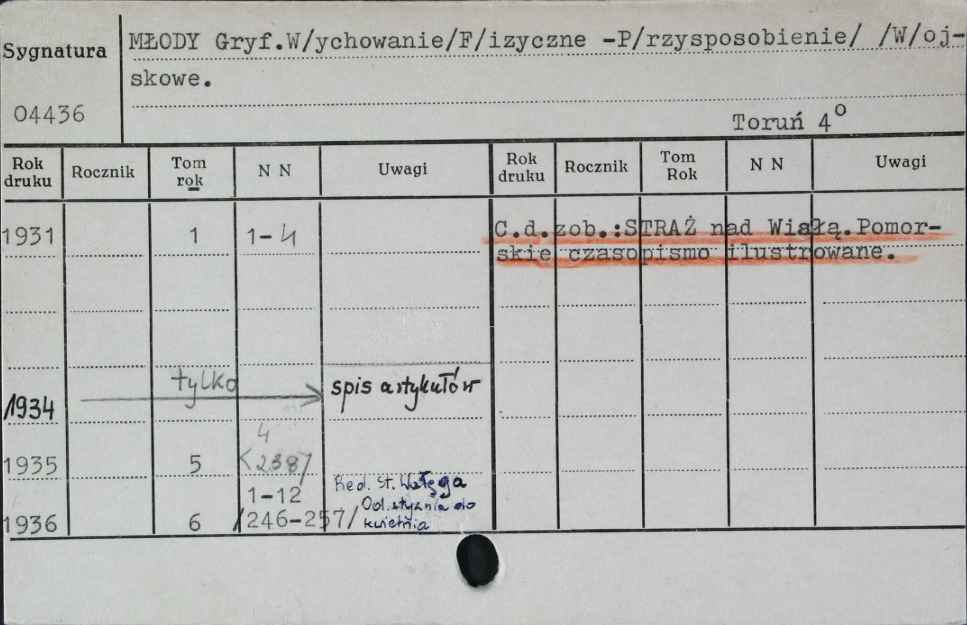 Sygnatura
MŁODY Gryf.W/ychowanie/F/izyczne -P/rzysposobienie/ /W/oj-
skowe.
04436
Toruń 4o
Rok druku Rocznik Tom rok N N Uwagi Rok druku Rocznik Tom Rok N N Uwagi
1931 1 1-4 C.d.zob.:STRAŻ nad Wisłą.Pomor-
skie czasopismo ilustrowane.
1934 tylko spis artykułów
4
1935 5 <238>
Red. St. Wałęga
1-12
Od stycznia do
1936 6 /246-257/ kwietnia